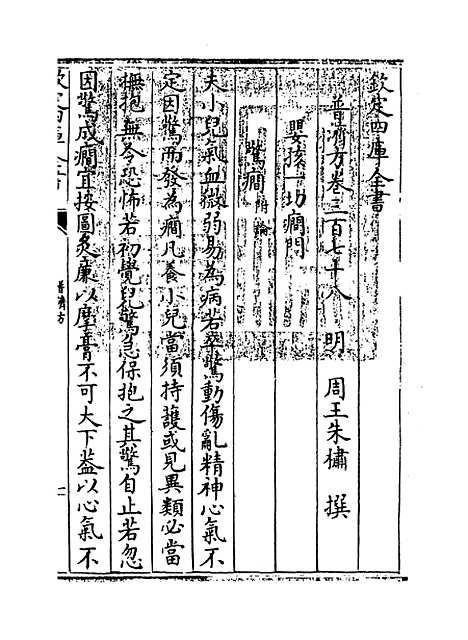 欽定四庫全書
普濟方卷三百七十八
明 周王朱橚 撰
嬰孩一切癇門
驚癇附論
夫小兒氣血微弱易為病若卒驚動傷亂精神心氣不
定因驚而發為癇凡養小兒當須持護或見異類必當
撫抱無令恐怖若初覺兒驚急保抱之其驚自止若忽
因驚成癇宜按圖灸廉以摩膏不可大下益以心氣不
欽定四庫全書
普濟方